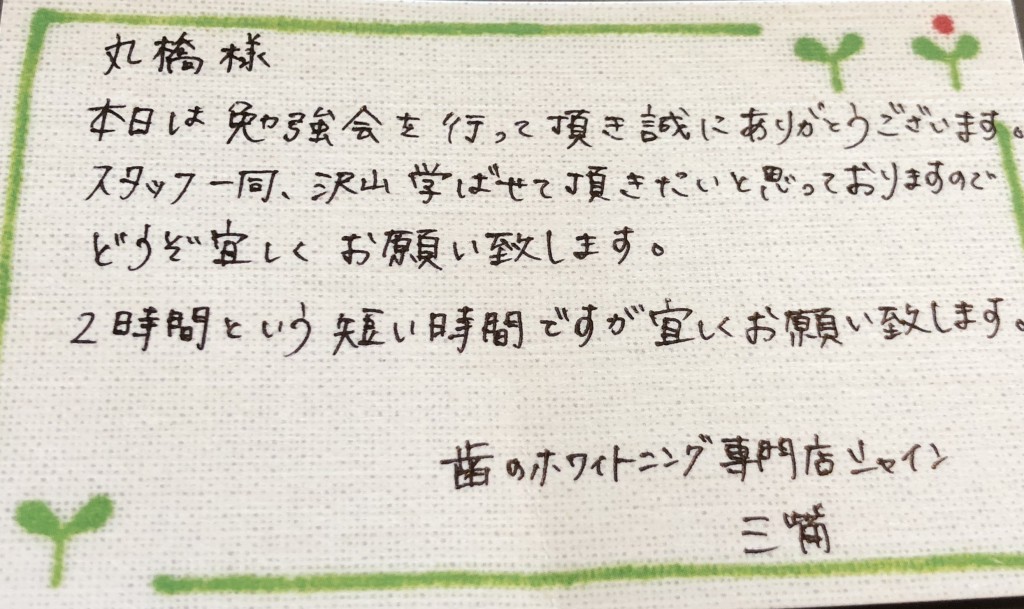 丸橋様
本日は勉強会を行って頂き誠にありがとうございます。
スタッフ一同、沢山学ばせて頂きたいと思っておりますので
どうぞ宜しくお願い致します。
2時間という短い時間ですが宜しくお願い致します。
歯のホワイトニング専門店シャイン
三嘴